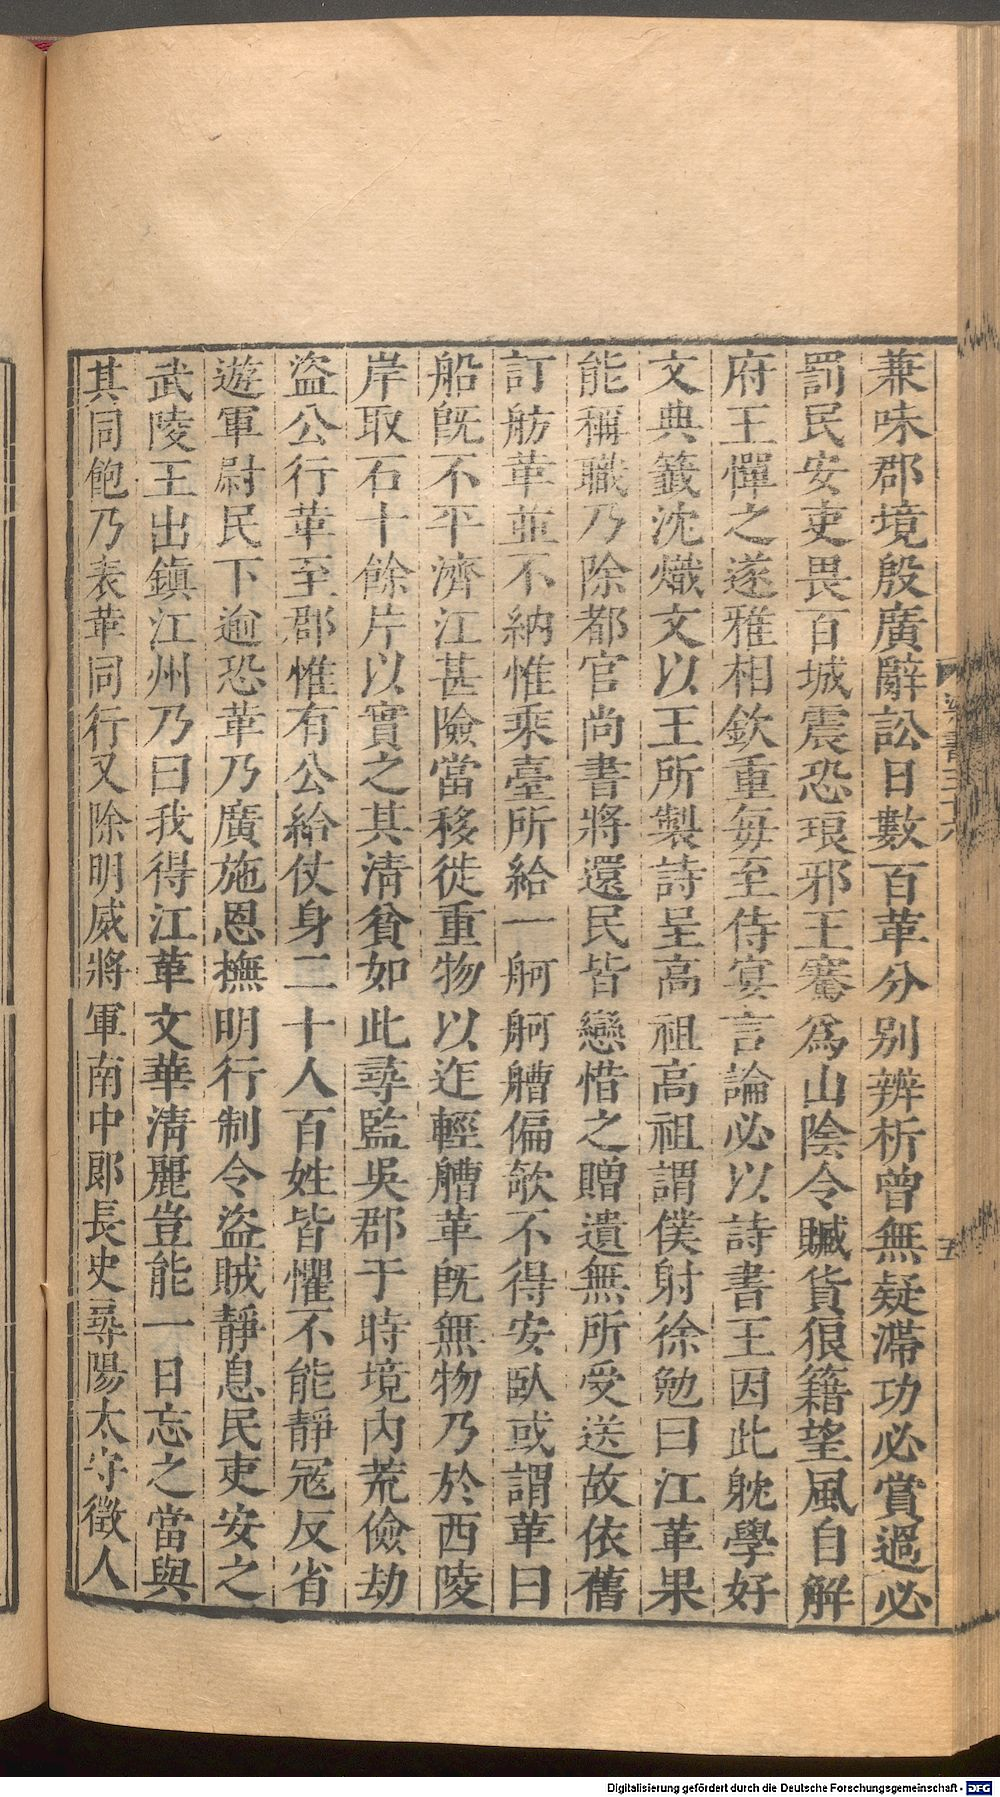 兼味郡境殷廣辭訟日數百革分别辨析曾無疑滯功必賞過必
罰民安吏畏百城震恐琅邪王騫爲山陰令贓貨狼籍望風自解
府王憚之遂雅相欽重每至侍宴言論必以詩書王因此躭學好
文典籖沈熾文以王所製詩呈高祖高祖謂僕射徐勉曰江革果
能稱職乃除都官尚書將還民皆戀惜之贈遺無所受送故依舊
訂舫革並不納惟乘臺所給一舸舸艚偏欹不得安臥或謂革曰
船旣不平濟江甚險當移徙重物以迮輕艚革旣無物乃於西陵
岸取石十餘片以實之其清貧如此尋監吳郡于時境内荒儉劫
盜公行革至郡惟有公給仗身二十人百姓皆懼不能靜冦反省
遊軍尉民下逾恐革乃廣施恩撫明行制令盜賊靜息民吏安之
武陵王出鎭江州乃曰我得江革文華清麗豈能一日忘之當與
其同飽乃表革同行又除明威將軍南中郎長史尋陽太守徵人
五
Digitalisierung gefördert durch die Deutsche Forschungsgemeinschaft - DFG